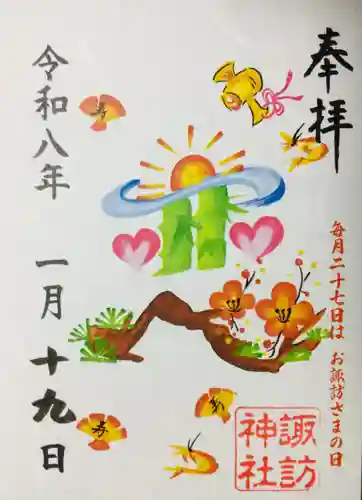 奉拝
毎月二十七日は お諏訪さまの日
諏訪
神社
寿
寿
寿
令和八年 一月 十九日